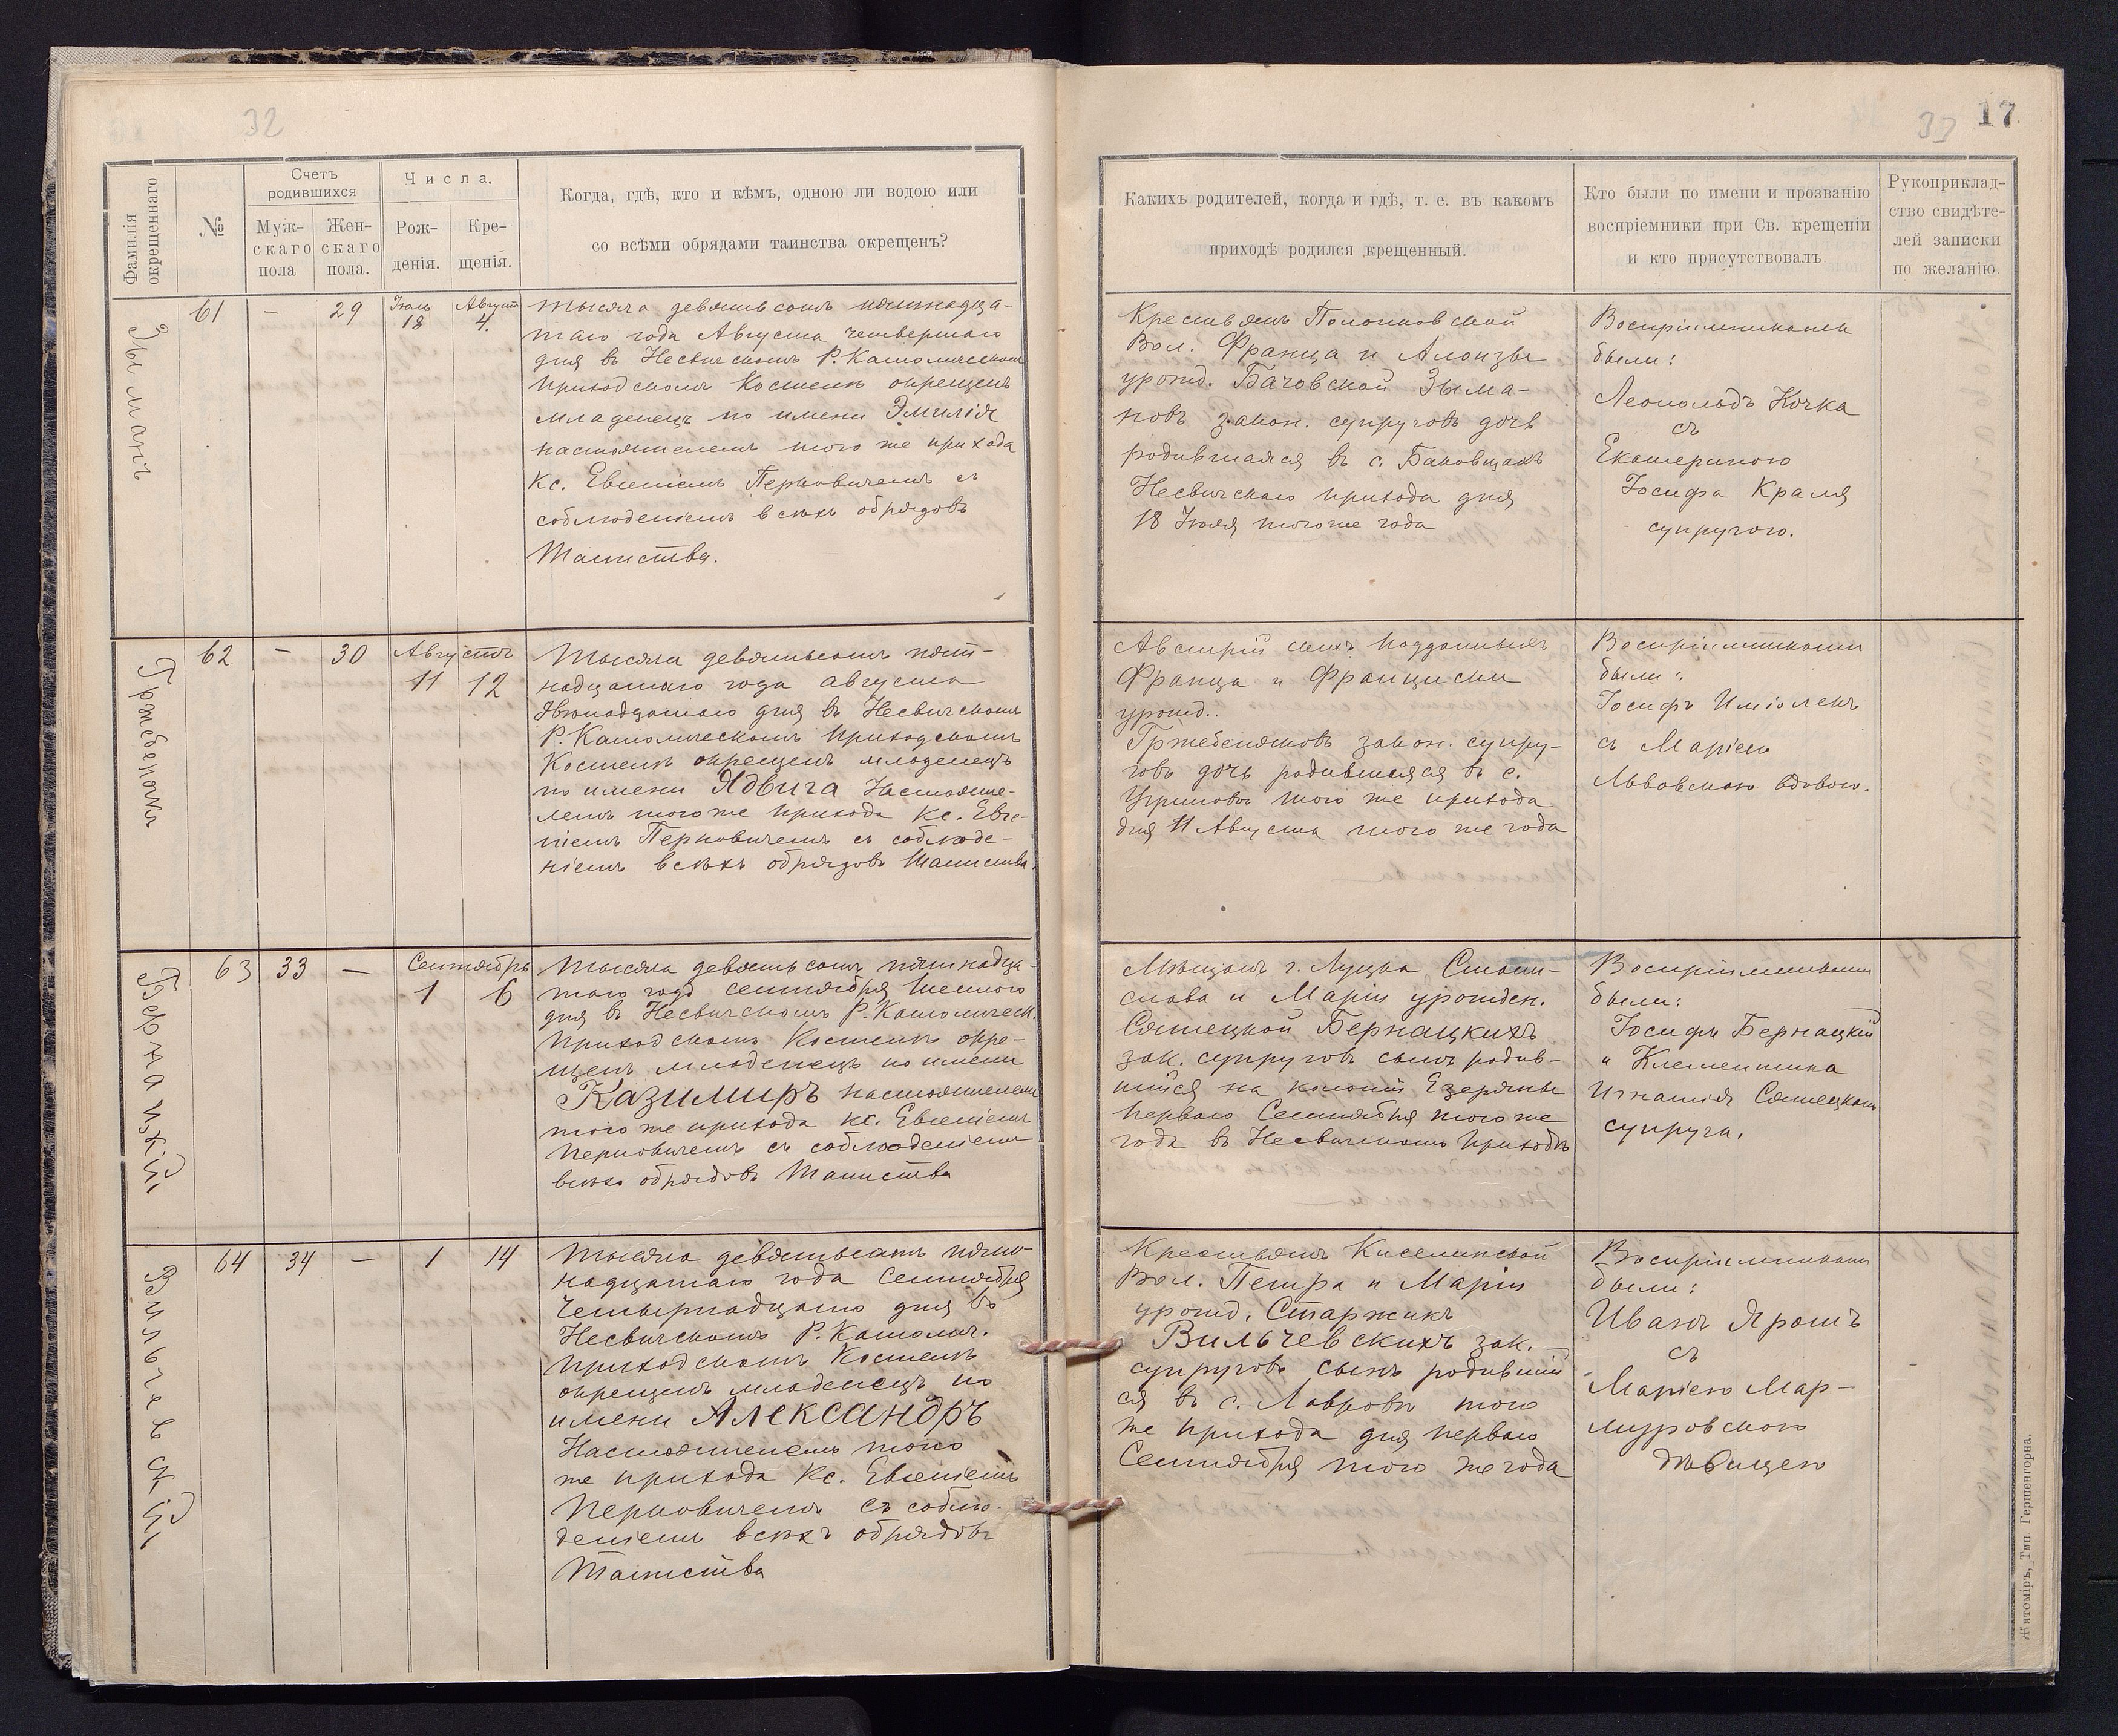 32
Фамилія окрещеннаго
№
Счетъ родившихся
Мужскаго пола
Женскаго пола.
Числа.
Рожденія.
Крещенія.
Когда, гдѣ, кто и кѣмъ, одною ли водою или
со всѣми обрядами таинства окрещенъ?
Зыманъ
61 — 29 Іюль 18 Августъ 4.
Тысяча девятьсотъ пятнадца-
таго года Августа четвертаго
дня въ Несвичскомъ Р. Католическомъ
приходскомъ Костелѣ окрещенъ
младенецъ по имени Эмилія
настоятелемъ того же прихода
Кс. Евгеніемъ Перковичемъ съ
соблюденіемъ всѣхъ обрядовъ
Таинства.
Гржебенюкъ
62 — 30 Августъ 11 12
Тысяча девятьсотъ пят-
надцатаго года августа
двѣнадцатаго дня въ Несвичскомъ
Р. Католическомъ приходскомъ
Костелѣ окрещенъ младенецъ
по имени Ядвига Настояте-
лемъ того же прихода Кс. Евге-
ніемъ Перковичемъ съ соблюде-
ніемъ всѣхъ обрядовъ Таинства.
Бернацкій
63 33 — Сентябрь 1 6
Тысяча девятьсотъ пятнадца-
таго года сентября шестого
дня въ Несвичскомъ Р. Католическ.
приходскомъ Костелѣ окре-
щенъ младенецъ по имени
Казимиръ настоятелемъ
того же прихода Кс. Евгеніемъ
Перковичемъ съ соблюденіемъ
всѣхъ обрядовъ Таинства
Вильчевскій
64 34 — 1 14
Тысяча девятьсотъ пят-
надцатаго года Сентября
четырнадцатаго дня въ
Несвичскомъ Р. Католич.
приходскомъ Костелѣ
окрещенъ младенецъ по
имени Александръ
Настоятелемъ того
же прихода Кс. Евгеніемъ
Перковичемъ съ соблю-
деніемъ всѣхъ обрядовъ
Таинства
33
17
Какихъ родителей, когда и гдѣ, т. е. въ какомъ
приходѣ родился крещенный.
Кто были по имени и прозванію
воспріемники при Св. крещеніи
и кто присутствовалъ.
Рукоприклад-
ство свидѣте-
лей записки
по желанію.
Крестьянъ Полонковской
Вол. Франца и Алоизы
урожд. Бачовской Зыма-
новъ закон. супруговъ дочь
родившаяся въ с. Баковцахъ
Несвичскаго прихода дня
18 Іюля того же года
Воспріемниками
были:
Леопольдъ Кочка
съ
Екатериною
Іосифа Краля
супругою.
Австрійскихъ подданныхъ
Франца и Франциски
урожд..
Гржебенюковъ закон. супру-
говъ дочь родившаяся въ с.
Угриновъ того же прихода
дня 11 Августа того же года
Воспріемниками
были:
Іосифъ
съ Маріею
Львовскою вдовою.
Мѣщанъ г. Луцка Стани-
слава и Маріи урожден.
Сятецкой Бернацкихъ
зак. супруговъ сынъ родив-
шійся на колоніи Езеряны
перваго Сентября того же
года въ Несвичскомъ приходѣ
Воспріемниками
были:
Іосифъ Бернацкій
и Клементина
Игнатія Сятецкаго
супруга.
Крестьянъ Киселинской
Вол. Петра и Маріи
урожд. Старжикъ
Вильчевскихъ зак.
супруговъ сынъ родившій
ся въ с. Лавровъ того
же прихода дня перваго
Сентября того же года
Воспріемниками
были:
Иванъ Ярошъ
съ
Маріею Мар-
муровскою
дѣвицею
Житоміръ, Тип Гершенгорна.